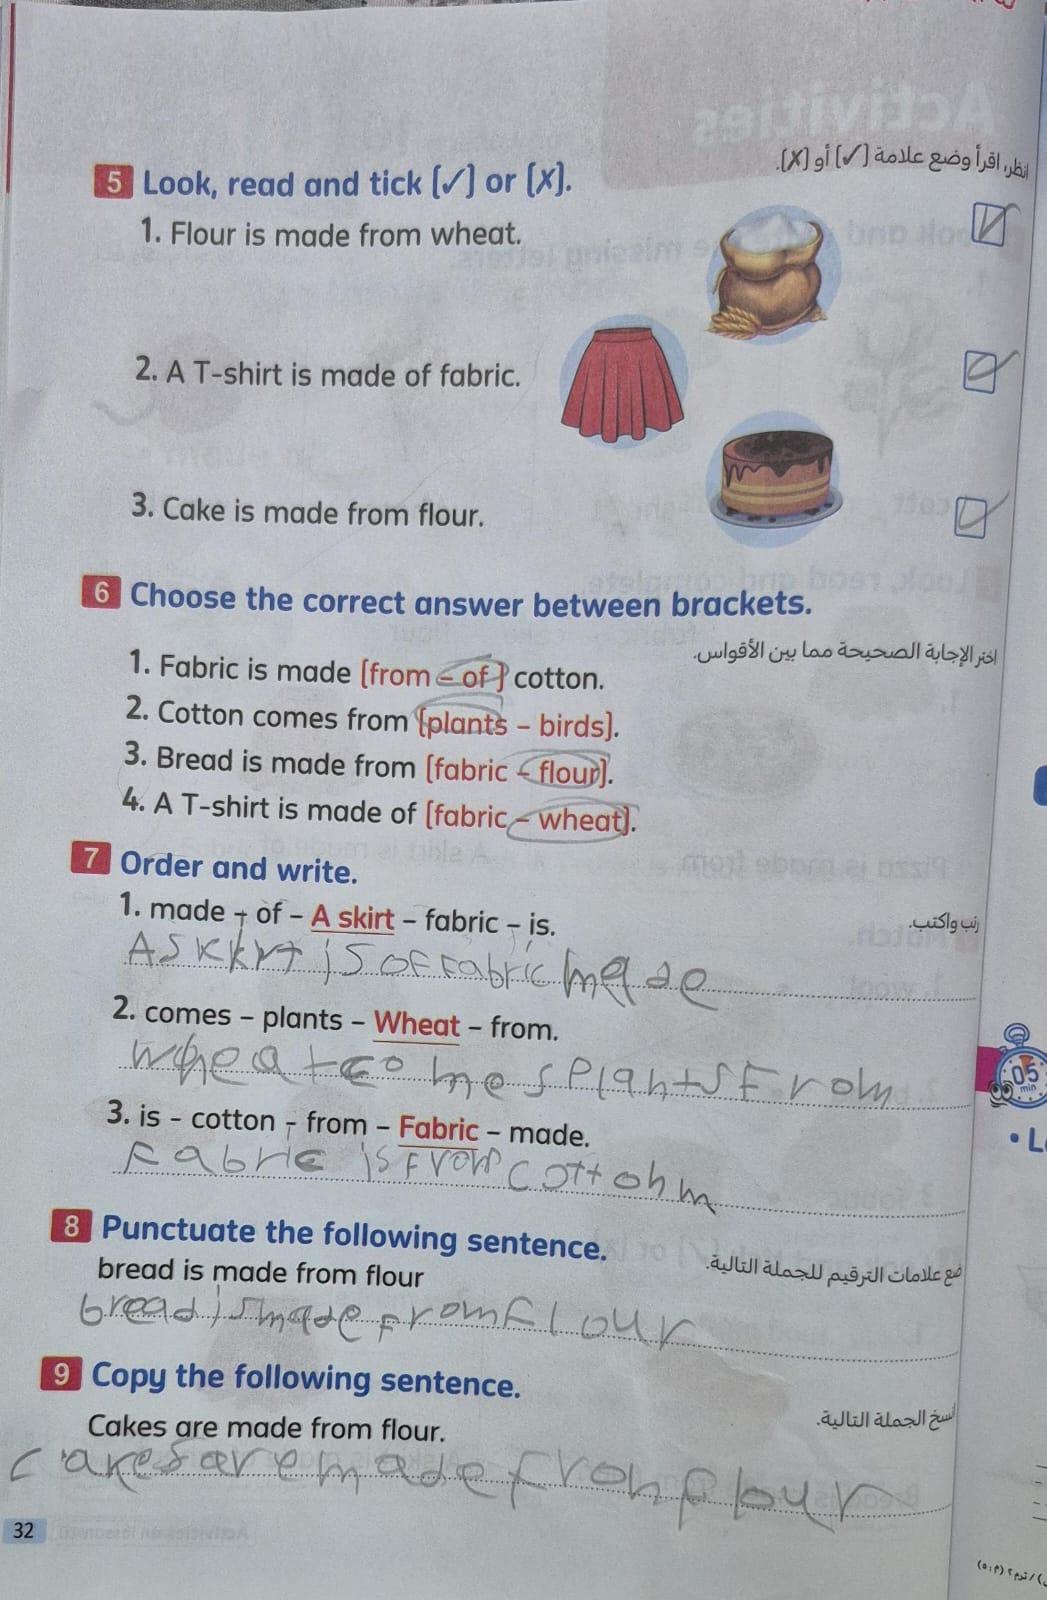 انظر، اقرأ وضع علامة (✓) أو (X).
5 Look, read and tick (✓) or (X).
1. Flour is made from wheat.
2. A T-shirt is made of fabric.
3. Cake is made from flour.
6 Choose the correct answer between brackets.
اختر الإجابة الصحيحة مما بين الأقواس.
1. Fabric is made (from – of) cotton.
2. Cotton comes from (plants – birds).
3. Bread is made from (fabric – flour).
4. A T-shirt is made of (fabric – wheat).
7 Order and write.
رتب واكتب.
1. made – of – A skirt – fabric – is.
A skkrt is of fabric made
2. comes – plants – Wheat – from.
wheat comes plants From
3. is – cotton – from – Fabric – made.
Fabric is from cottohm
8 Punctuate the following sentence.
ضع علامات الترقيم للجملة التالية.
bread is made from flour
bread is made from flour
9 Copy the following sentence.
انسخ الجملة التالية.
Cakes are made from flour.
cakes are made froh flour
32
05
min